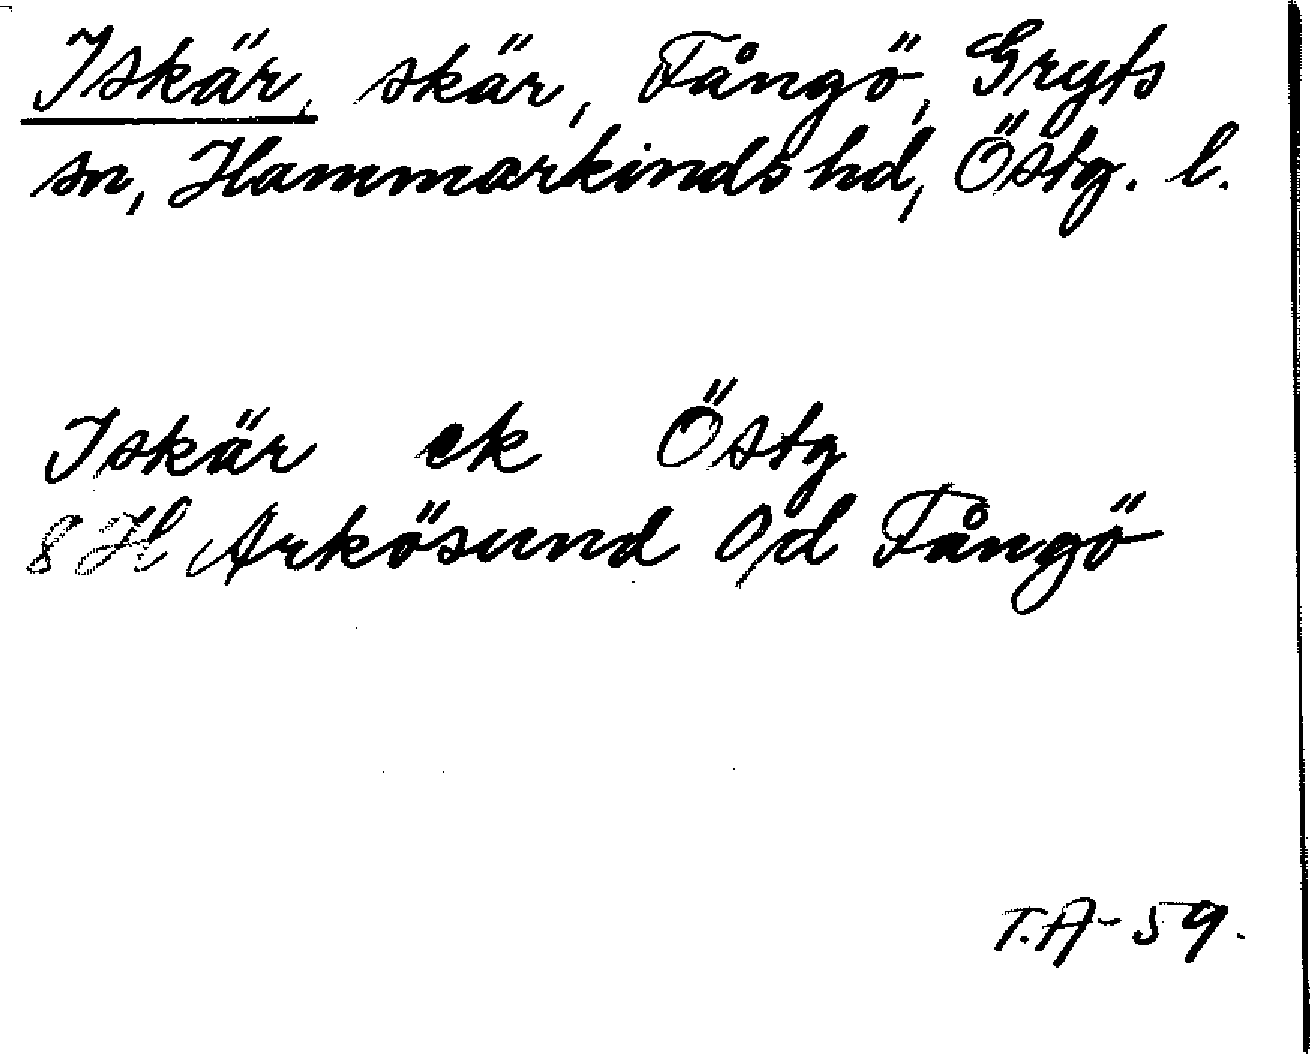 Iskär, skär, Fångö, Gryts
sn, Hammarkinds hd, Östg. l.
Iskär ek Östg
8 H Arkösund O/d Fångö
T.A-59.